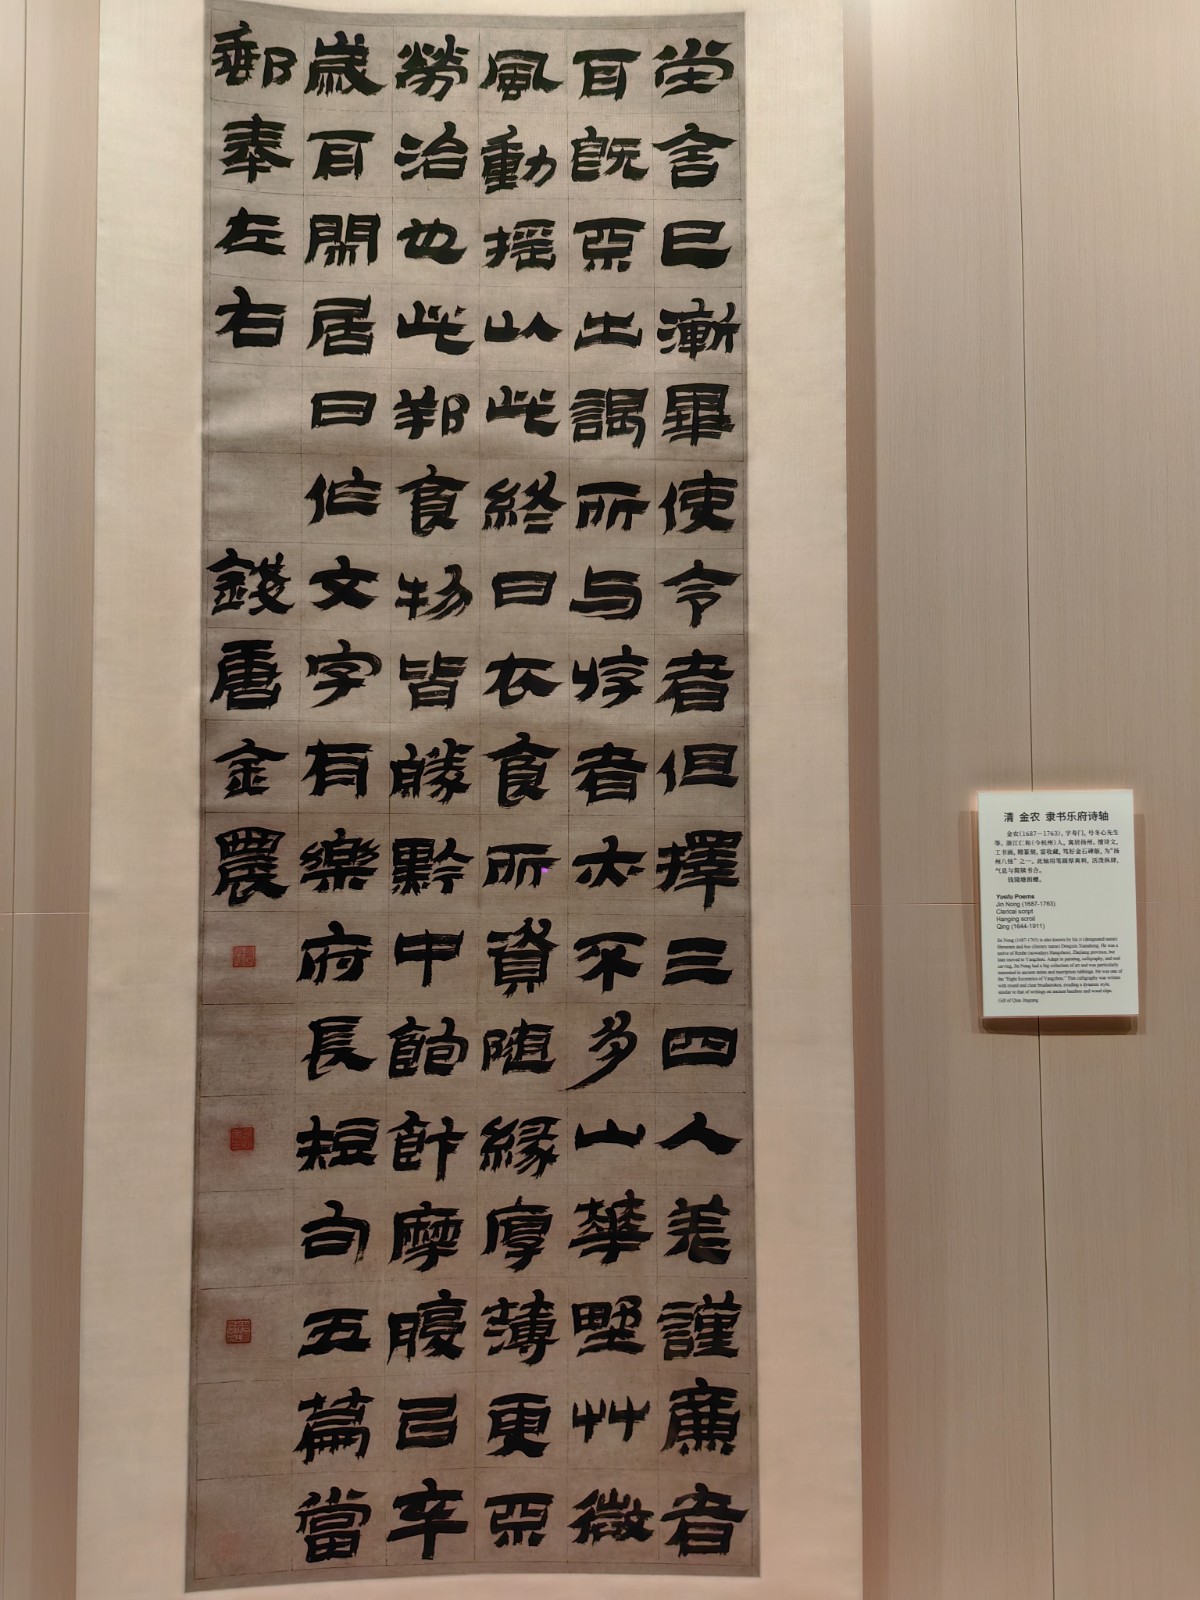 坣舍已漸畢使令者但擇三四人差謹廉者
耳既出謁所与者亦不多山華野艸微
風動揺以此終日衣食所資随緣厚薄更
勞治也此邦食物皆勝黔中飽飰摩腹已卒
歲耳閒居日作文字有樂府長短句五篇當
郵奉左右 錢唐金農
清 金农 隶书乐府诗轴
金农(1687—1763),字寿门,号冬心先生
等,浙江仁和(今杭州)人,寓居扬州。擅诗文,
工书画,精篆刻,富收藏,笃好金石碑版,为“扬
州八怪”之一。此轴用笔圆厚爽利,活泼纵肆,
气息与简牍书合。
钱镜塘捐赠。
Yuefu Poems
Jin Nong (1687-1763)
Clerical script
Hanging scroll
Qing (1644-1911)
Jin Nong (1687-1763) is also known by his zi (designated name)
Shoumen and hao (literary name) Dongxin Xiansheng. He was a
native of Renhe (nowadays Hangzhou), Zhejiang province, but
later moved to Yangzhou. Adept in painting, calligraphy, and seal
carving, Jin Nong had a big collection of art and was particularly
interested in ancient steles and inscription rubbings. He was one of
the "Eight Eccentrics of Yangzhou." This calligraphy was written
with round and clear brushstrokes, exuding a dynamic style,
similar to that of writings on ancient bamboo and wood slips.
Gift of Qian Jingtang